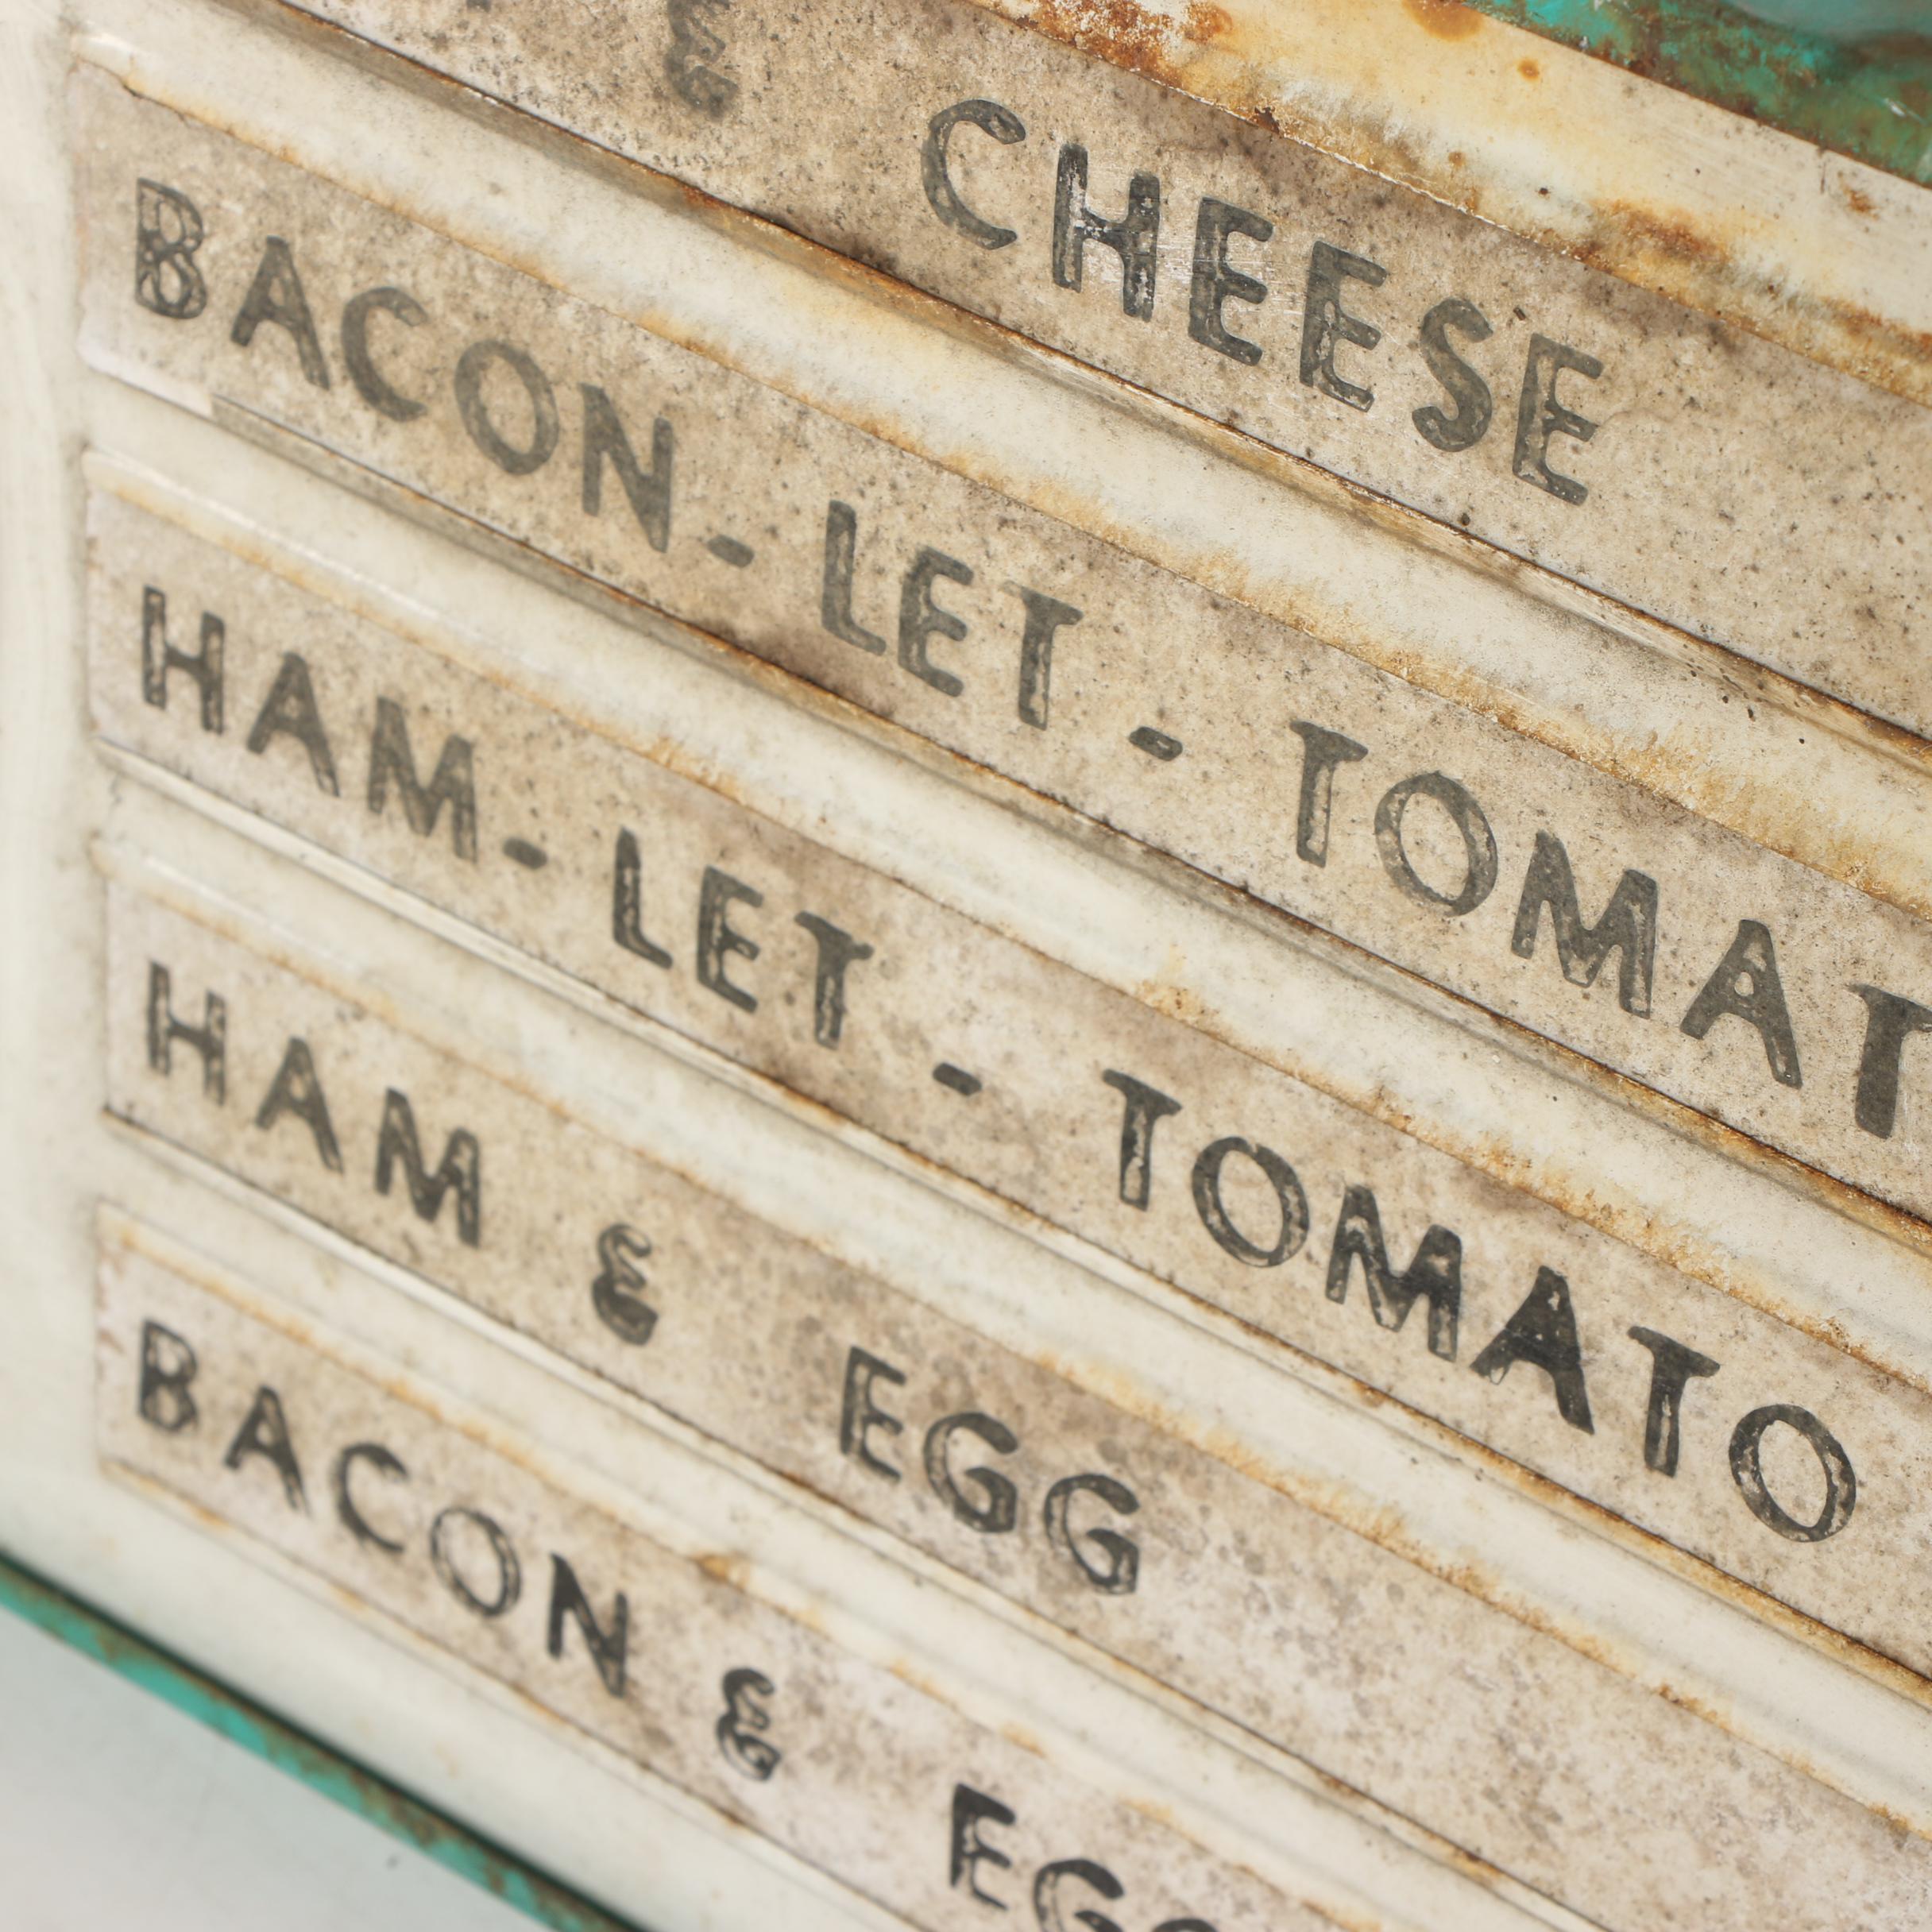 & CHEESE
BACON-LET-TOMAT
HAM-LET-TOMATO
HAM & EGG
BACON & EGG